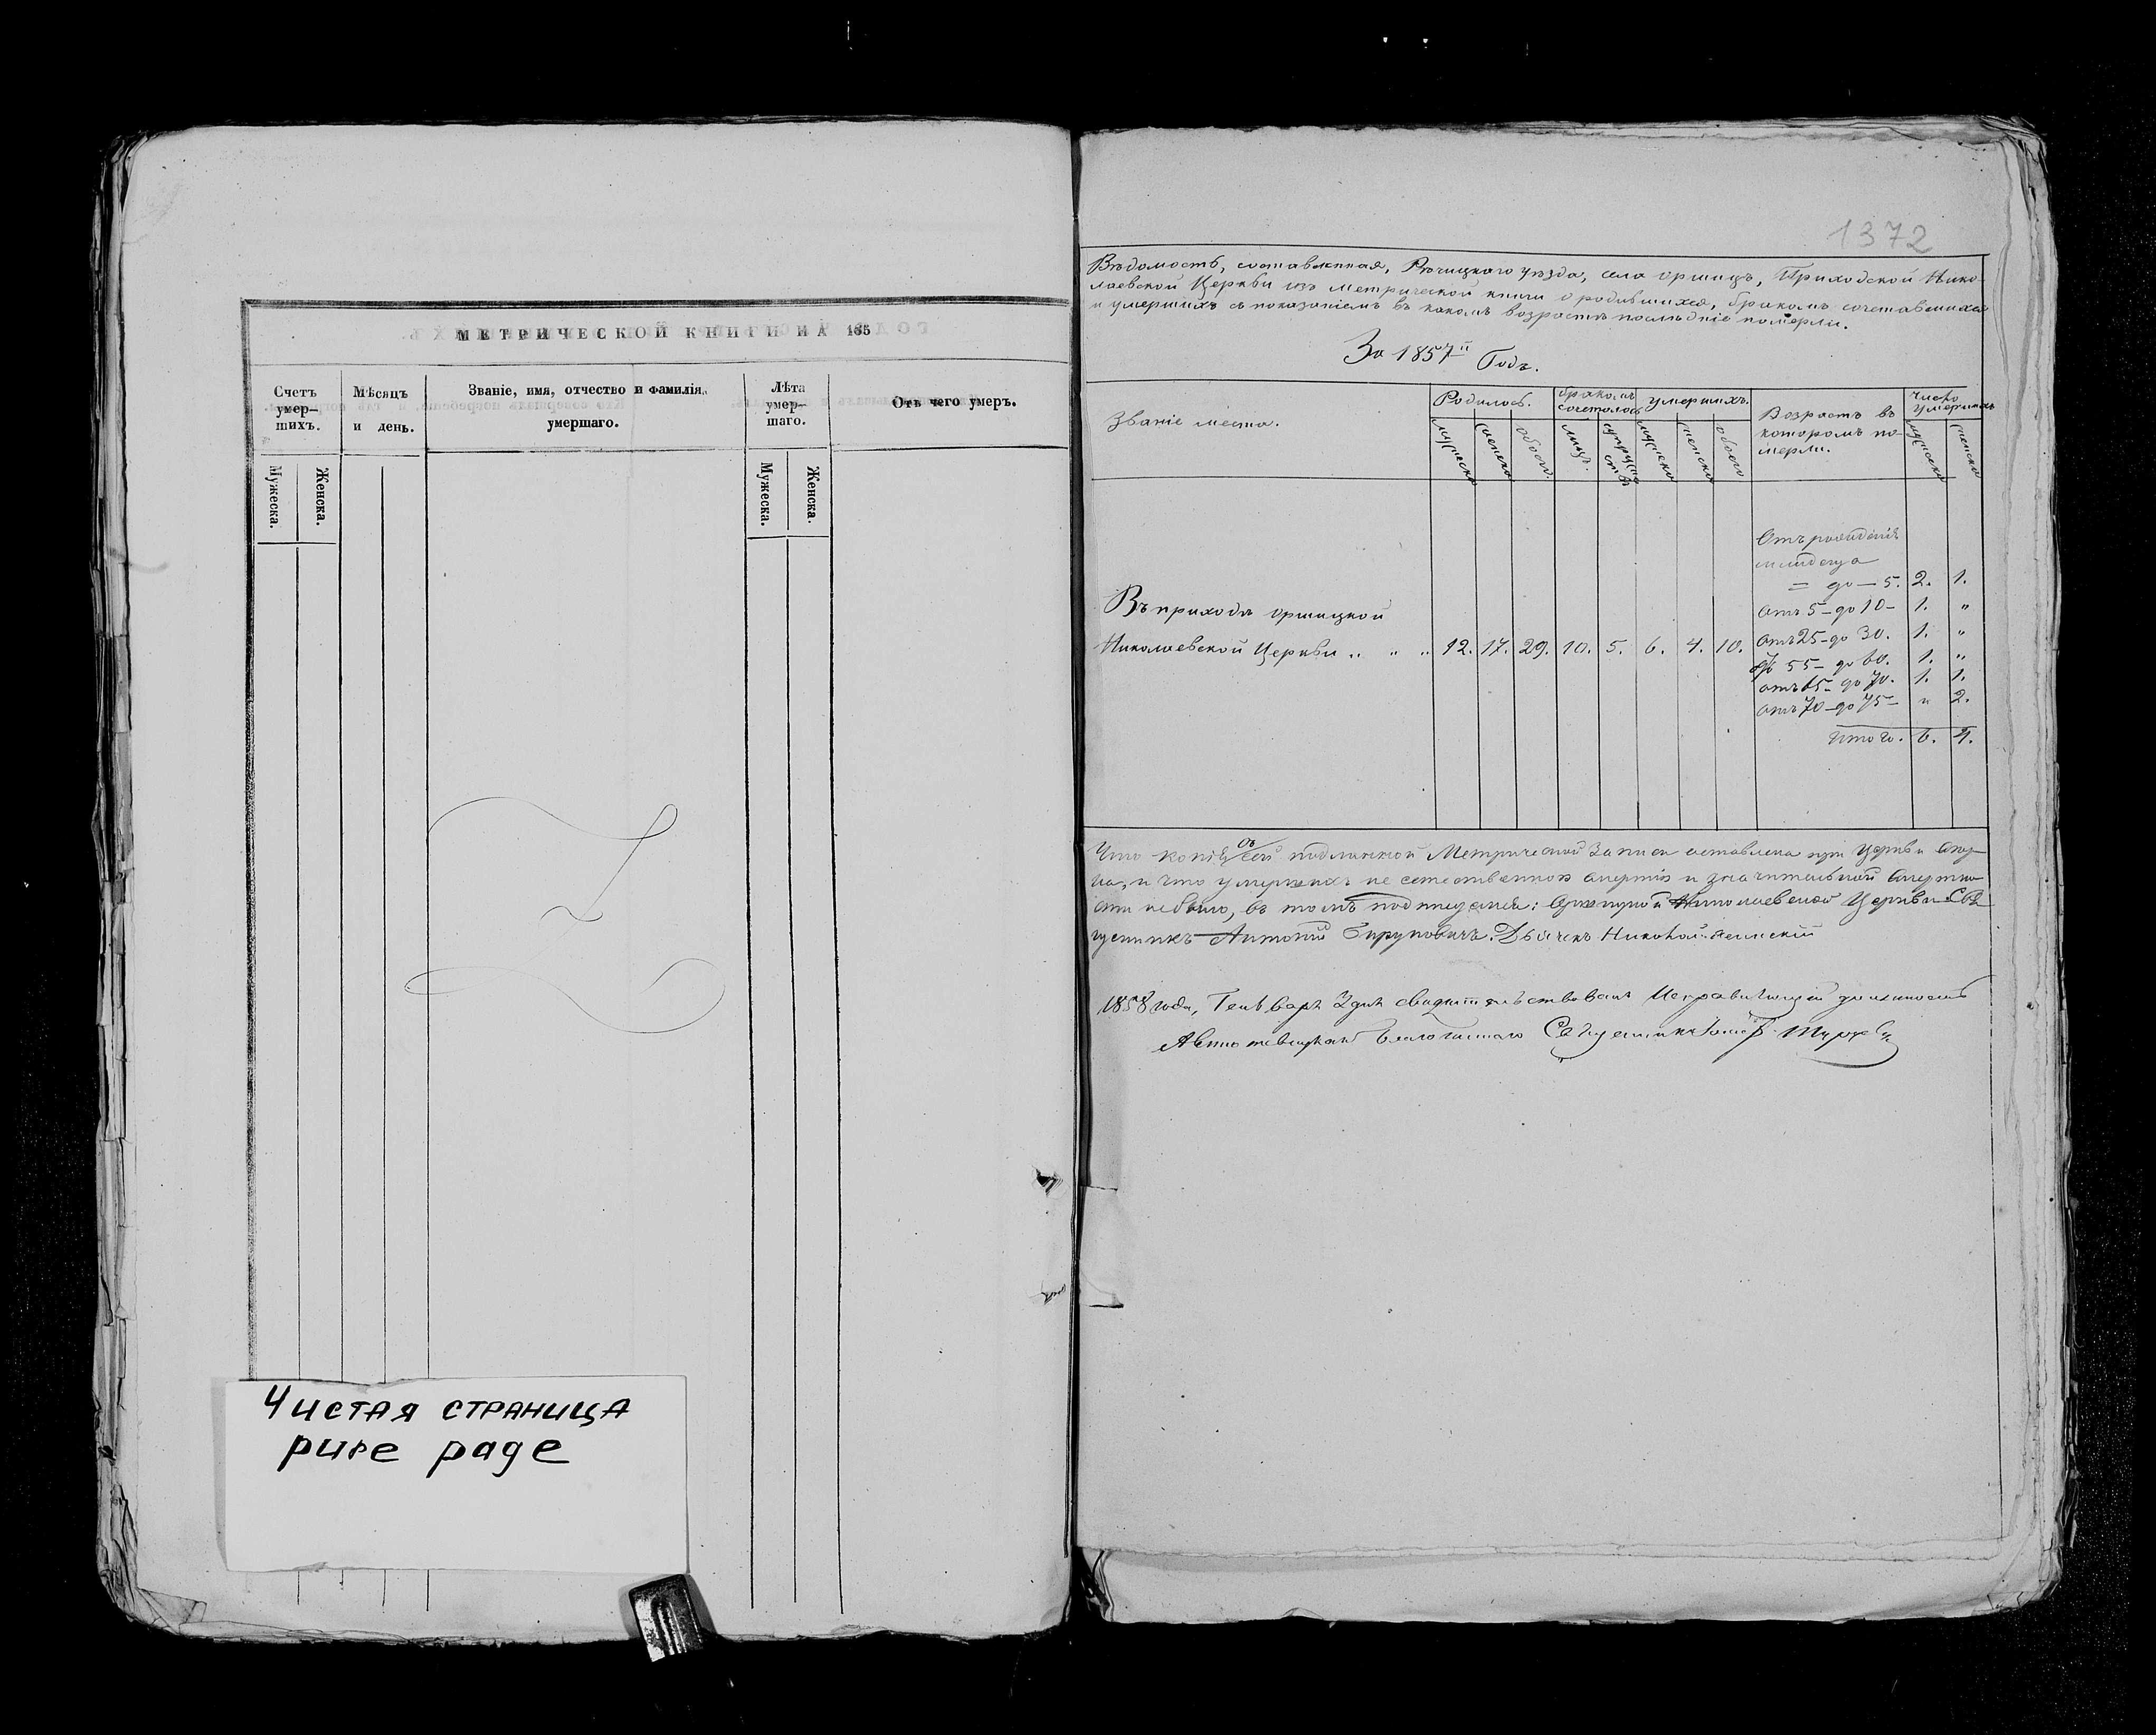 МЕТРИЧЕСКОЙ КНИГИ НА 185
Счетъ умер- шихъ.
Мѣсяцъ и день.
Званіе, имя, отчество и фамилія, умершаго.
Лѣта умер- шаго.
Отъ чего умеръ.
Мужеска.
Женска.
Мужеска.
Женска.
Чистая страница
pure page
1372
Вѣдомость, составленная, Рѣчицкаго уѣзда, села Оршицъ, Приходской Нико-
лаевской Церкви изъ метрической книги о родившихся, бракомъ сочетавшихся
и умершихъ съ показаніемъ въ какомъ возрастѣ послѣдніе померли.
За 1857й Годъ.
Званіе места.
Родилось.
бракомъ сочеталось
умершихъ.
Возрастъ въ которомъ по- мерли.
Число умершихъ
мужеска женска обоего. лицъ. супружествъ мужеска женска обоего мужеска женска
Отъ рожденія
младенца
= до — 5. 2. 1.
Въ приходѣ оршицкой
отъ 5 - до 10 - 1. "
Николаевской Церкви .. " .. 12. 17. 29. 10. 5. 6. 4. 10. отъ 25 - до 30. 1. "
55 - до 60. 1. "
отъ 65 - до 70. 1. 1.
отъ 70 - до 75 - " 2.
Итого. 6. 4.
Что копія съ сей подлинной Метрической записи оставлена при Церкви
и что умершихъ не естественною смертію и значительной смертно-
сти небыло, въ томъ подписуемся: Николаевской Церкви Свя-
щенникъ Антоній Дьячекъ Николай
1858 года, Генваря дня свидѣтельствовалъ Исправляющій должность
Благочиннаго Священникъ